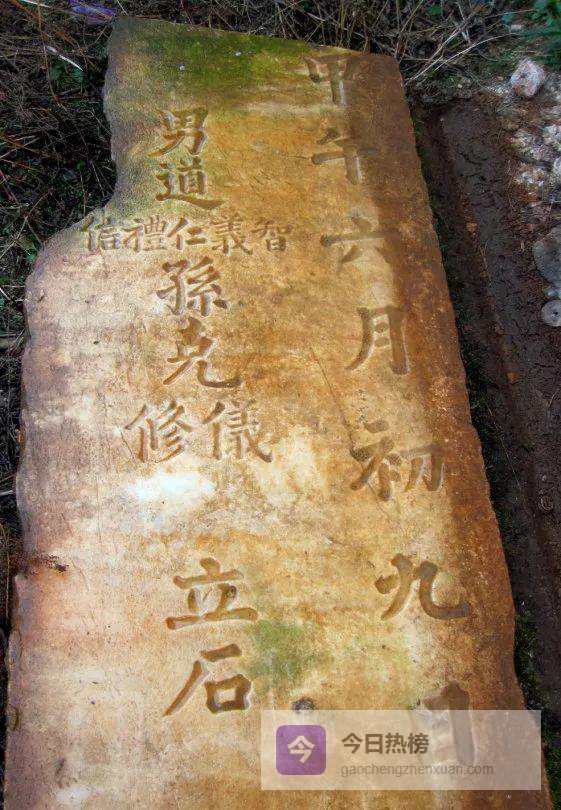 甲午六月初九日
男道
智義仁禮信
孫克
儀修
立石
今
今日热榜
gaochengzhenxuan.com